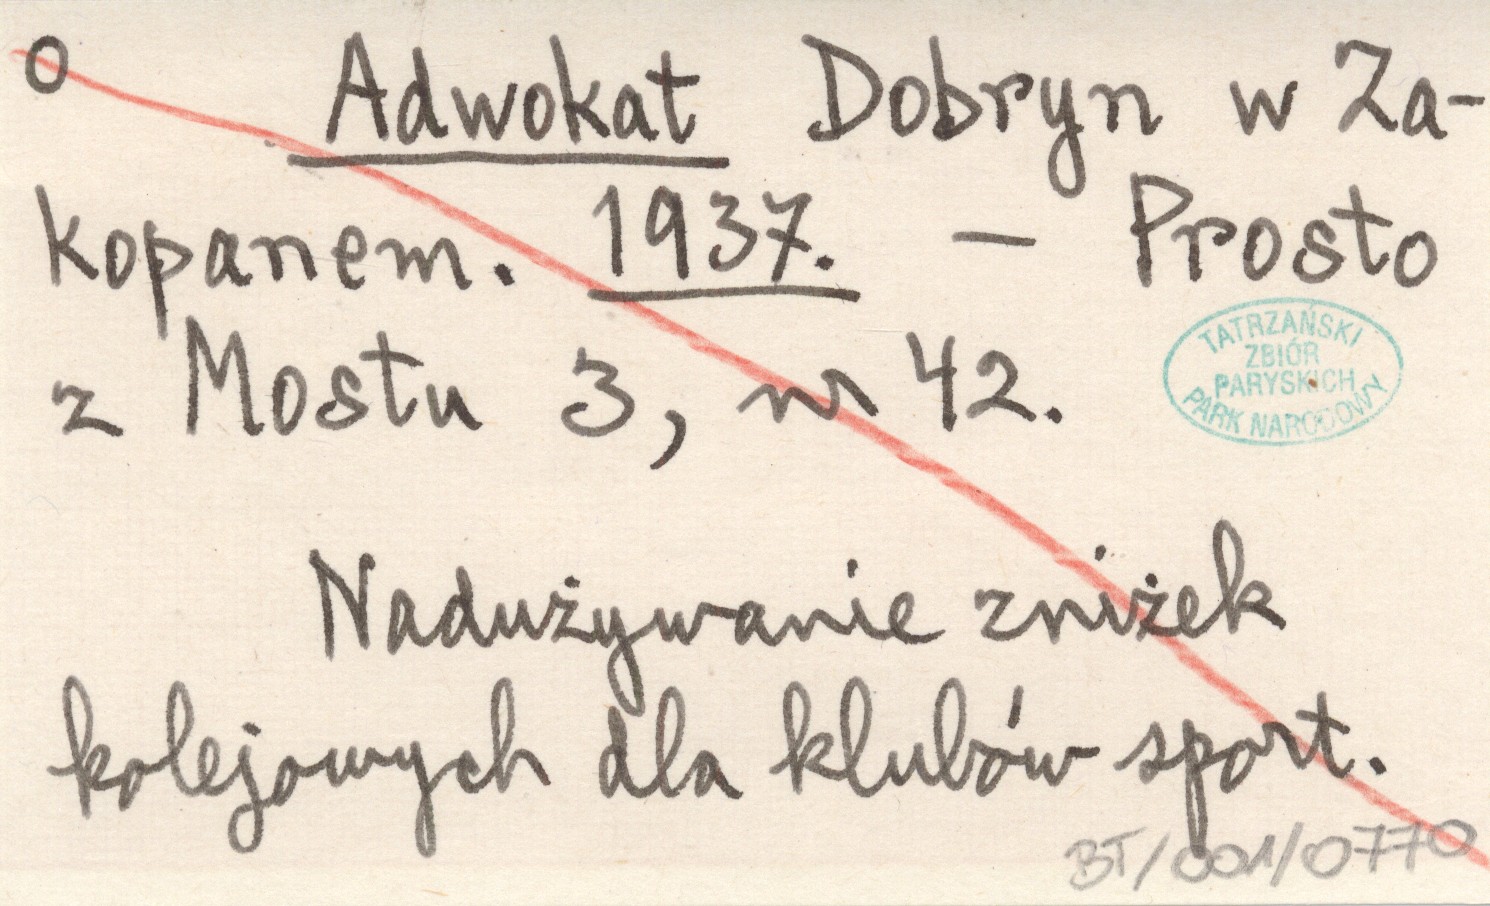 O Adwokat Dobryn w Za-
kopanem. 1937. — Prosto
z Mostu 3, nr 42.
TATRZAŃSKI
ZBIÓR
PARYSKICH
PARK NARODOWY
Nadużywanie zniżek
kolejowych dla klubów sport.
BT/001/0770